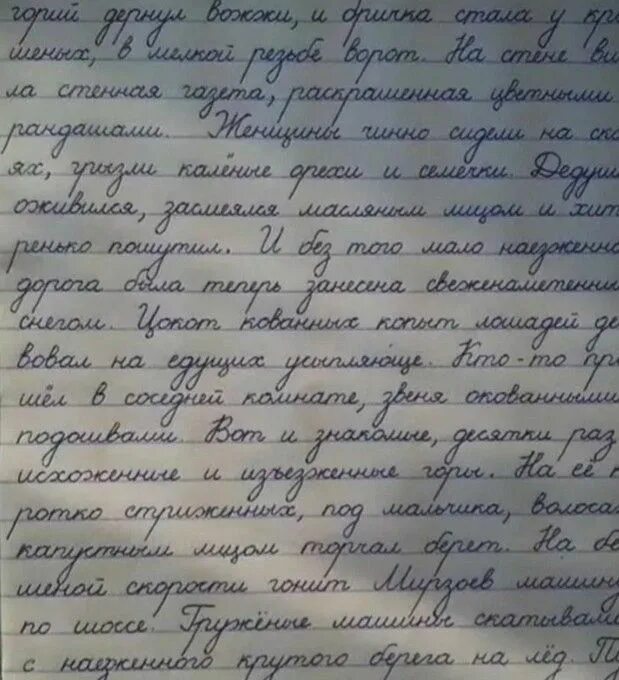 горий дернул вожжи, и бричка стала у кра
шеных, в мелкой резьбе ворот. На стене ви
ла стенная газета, раскрашенная цветными
рандашами. Женщины чинно сидели на ска
ях, грызли калёные орехи и семечки. Дедуш
оживился, засмеялся масляным лицом и хит
ренько пошутил. И без того мало наезженна
дорога была теперь занесена свеженаметенны
снегом. Цокот кованных копыт лошадей де
вовал на едущих усыпляюще. Кто-то пр
шёл в соседней комнате, звеня окованными
подошвами. Вот и знакомые, десятки раз
исхоженные и изъезженные горы. На её к
ротко стриженных, под мальчика, волоса
капустным лицом торчал берет. На бе
шеной скорости гонит Мирзоев машину
по шоссе. Гружёные машины скатывали
с наезженного крутого берега на лёд. П